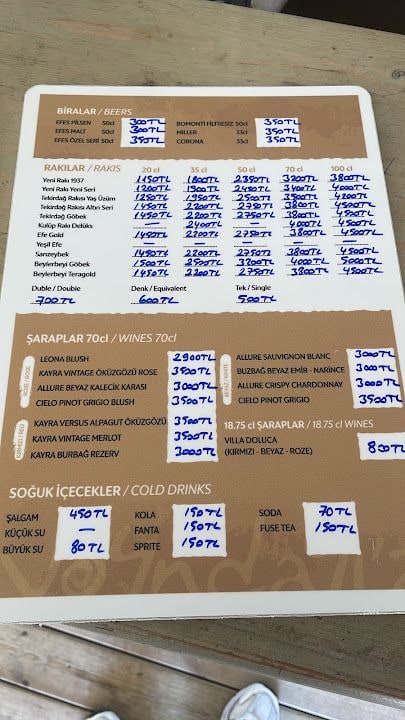 BİRALAR / BEERS
EFES PİLSEN 50cl 300TL BOMONTİ FİLTRESİZ 50cl 350TL
EFES MALT 50cl 300TL MILLER 33cl 350TL
EFES ÖZEL SERİ 50cl 350TL CORONA 33cl 350TL
RAKILAR / RAKIS 20 cl 35 cl 50 cl 70 cl 100 cl
Yeni Rakı 1937 1150TL 1800TL 2350TL 3200TL 3800TL
Yeni Rakı Yeni Seri 1200TL 1900TL 2450TL 3400TL 4000TL
Tekirdağ Rakısı Yaş Üzüm 1250TL 1950TL 2500TL 3500TL 4200TL
Tekirdağ Rakısı Altın Seri 1450TL 2200TL 2750TL 3800TL 4500TL
Tekirdağ Göbek 1450TL 2200TL 2750TL 3800TL 4500TL
Kulüp Rakı Delüks — 2400TL — 4000TL —
Efe Gold 1450TL 2200TL 2750TL 3800TL 4500TL
Yeşil Efe — — — — —
Sarızeybek 1450TL 2200TL 2750TL 3800TL 4500TL
Beylerbeyi Göbek 1500TL 2500TL 3800TL 4000TL 5000TL
Beylerbeyi Teragold 1450TL 2200TL 2750TL 3800TL 4500TL
Duble / Double Denk / Equivalent Tek / Single
700TL 600TL 500TL
ŞARAPLAR 70cl / WINES 70cl
ROZE / ROSE
LEONA BLUSH 2900TL
KAYRA VINTAGE ÖKÜZGÖZÜ ROSE 3500TL
ALLURE BEYAZ KALECİK KARASI 3000TL
CIELO PINOT GRIGIO BLUSH 3500TL
BEYAZ / WHITE
ALLURE SAUVIGNON BLANC 3000TL
BUZBAĞ BEYAZ EMİR - NARİNCE 3000TL
ALLURE CRISPY CHARDONNAY 3000TL
CIELO PINOT GRIGIO 3500TL
KIRMIZI / RED
KAYRA VERSUS ALPAGUT ÖKÜZGÖZÜ 3500TL
KAYRA VINTAGE MERLOT 3500TL
KAYRA BURBAĞ REZERV 3000TL
18.75 cl ŞARAPLAR / 18.75 cl WINES
VILLA DOLUCA
(KIRMIZI - BEYAZ - ROZE) 800TL
SOĞUK İÇECEKLER / COLD DRINKS
ŞALGAM 450TL KOLA 150TL SODA 70TL
KÜÇÜK SU — FANTA 150TL FUSE TEA 150TL
BÜYÜK SU 80TL SPRITE 150TL